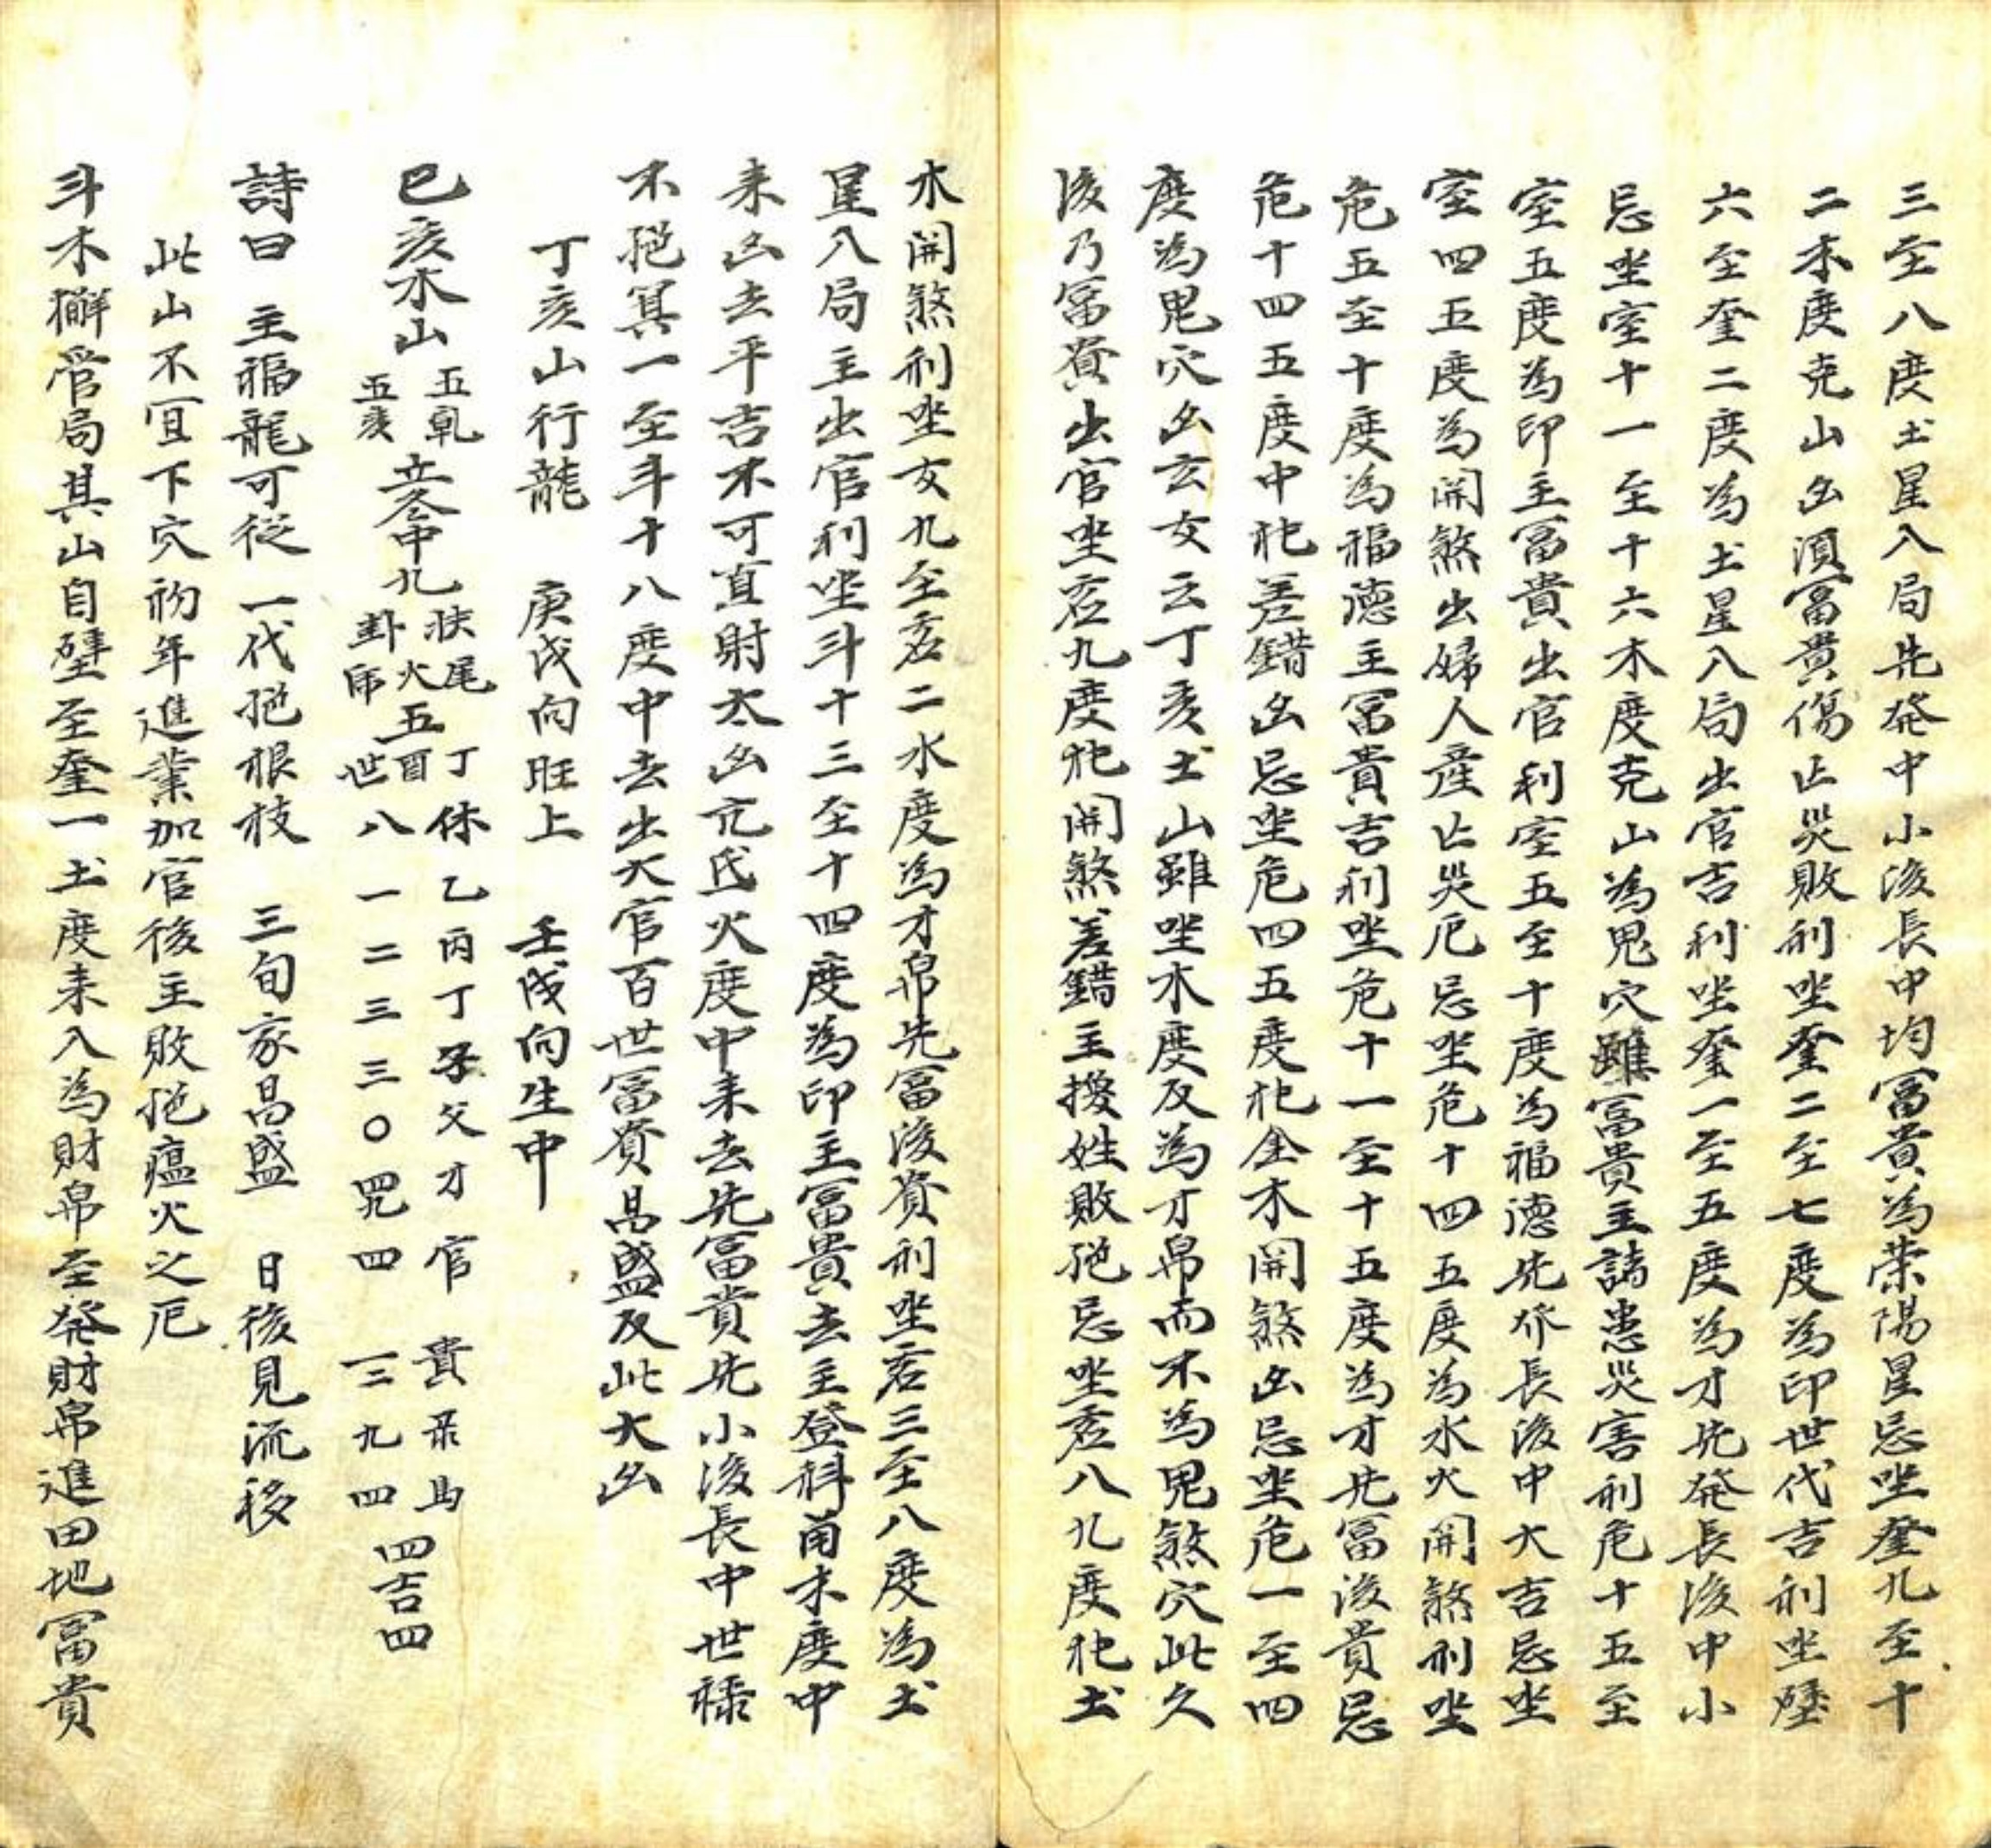 三至八度土星入局先發中小後長中均富貴為荣陽星忌坐奎九至十
二木度克山凶須富貴傷亡災敗利坐奎二至七度為印世代吉利坐壁
六至奎二度為土星入局出官吉利坐奎一至五度為才先發長後中小
忌坐室十一至十六木度克山為鬼穴雖富貴主請患災害利危十五至
室五度為印主富貴出官利室五至十度為福德先發長後中大吉忌坐
室四五度為開煞出婦人產亡災厄忌坐危十四五度為水火開煞利坐
危五至十度為福德主富貴吉利坐危十一至十五度為才先富後貴忌
危十四五度中犯差錯凶忌坐危四五度犯金木開煞凶忌坐危一至四
度為鬼穴凶玄女云丁亥土山雖坐木度反為才帛而不為鬼煞穴此久
後乃富貴出官坐虛九度犯開煞差錯主換姓敗絕忌坐虛八九度犯土
水開煞利坐女九至虛二水度為才帛先富後貴利坐虛三至八度為土
星入局主出官利坐斗十三至十四度為印主富貴去主登科角木度中
來凶去平吉不可直射太凶亢氐火度中來去先富貴先小後長中世祿
不絕箕一至斗十八度中去出大官百世富貴昌盛反此大凶
丁亥山行龍 庚戌向旺上 壬戌向生中
己亥木山 五乾 五亥 立參中九 扶尾火五丁休乙丙丁子父才官貴录馬
卦 世八一二三三〇 四 三九四 四吉四
詩曰 主福龍可從 一代絕根枝 三旬家昌盛 日後見流移
此山不宜下穴初年進業加官後主敗絕瘟火之厄
斗木獬管局其山自壁至奎一土度來入為財帛至發財帛進田地富貴